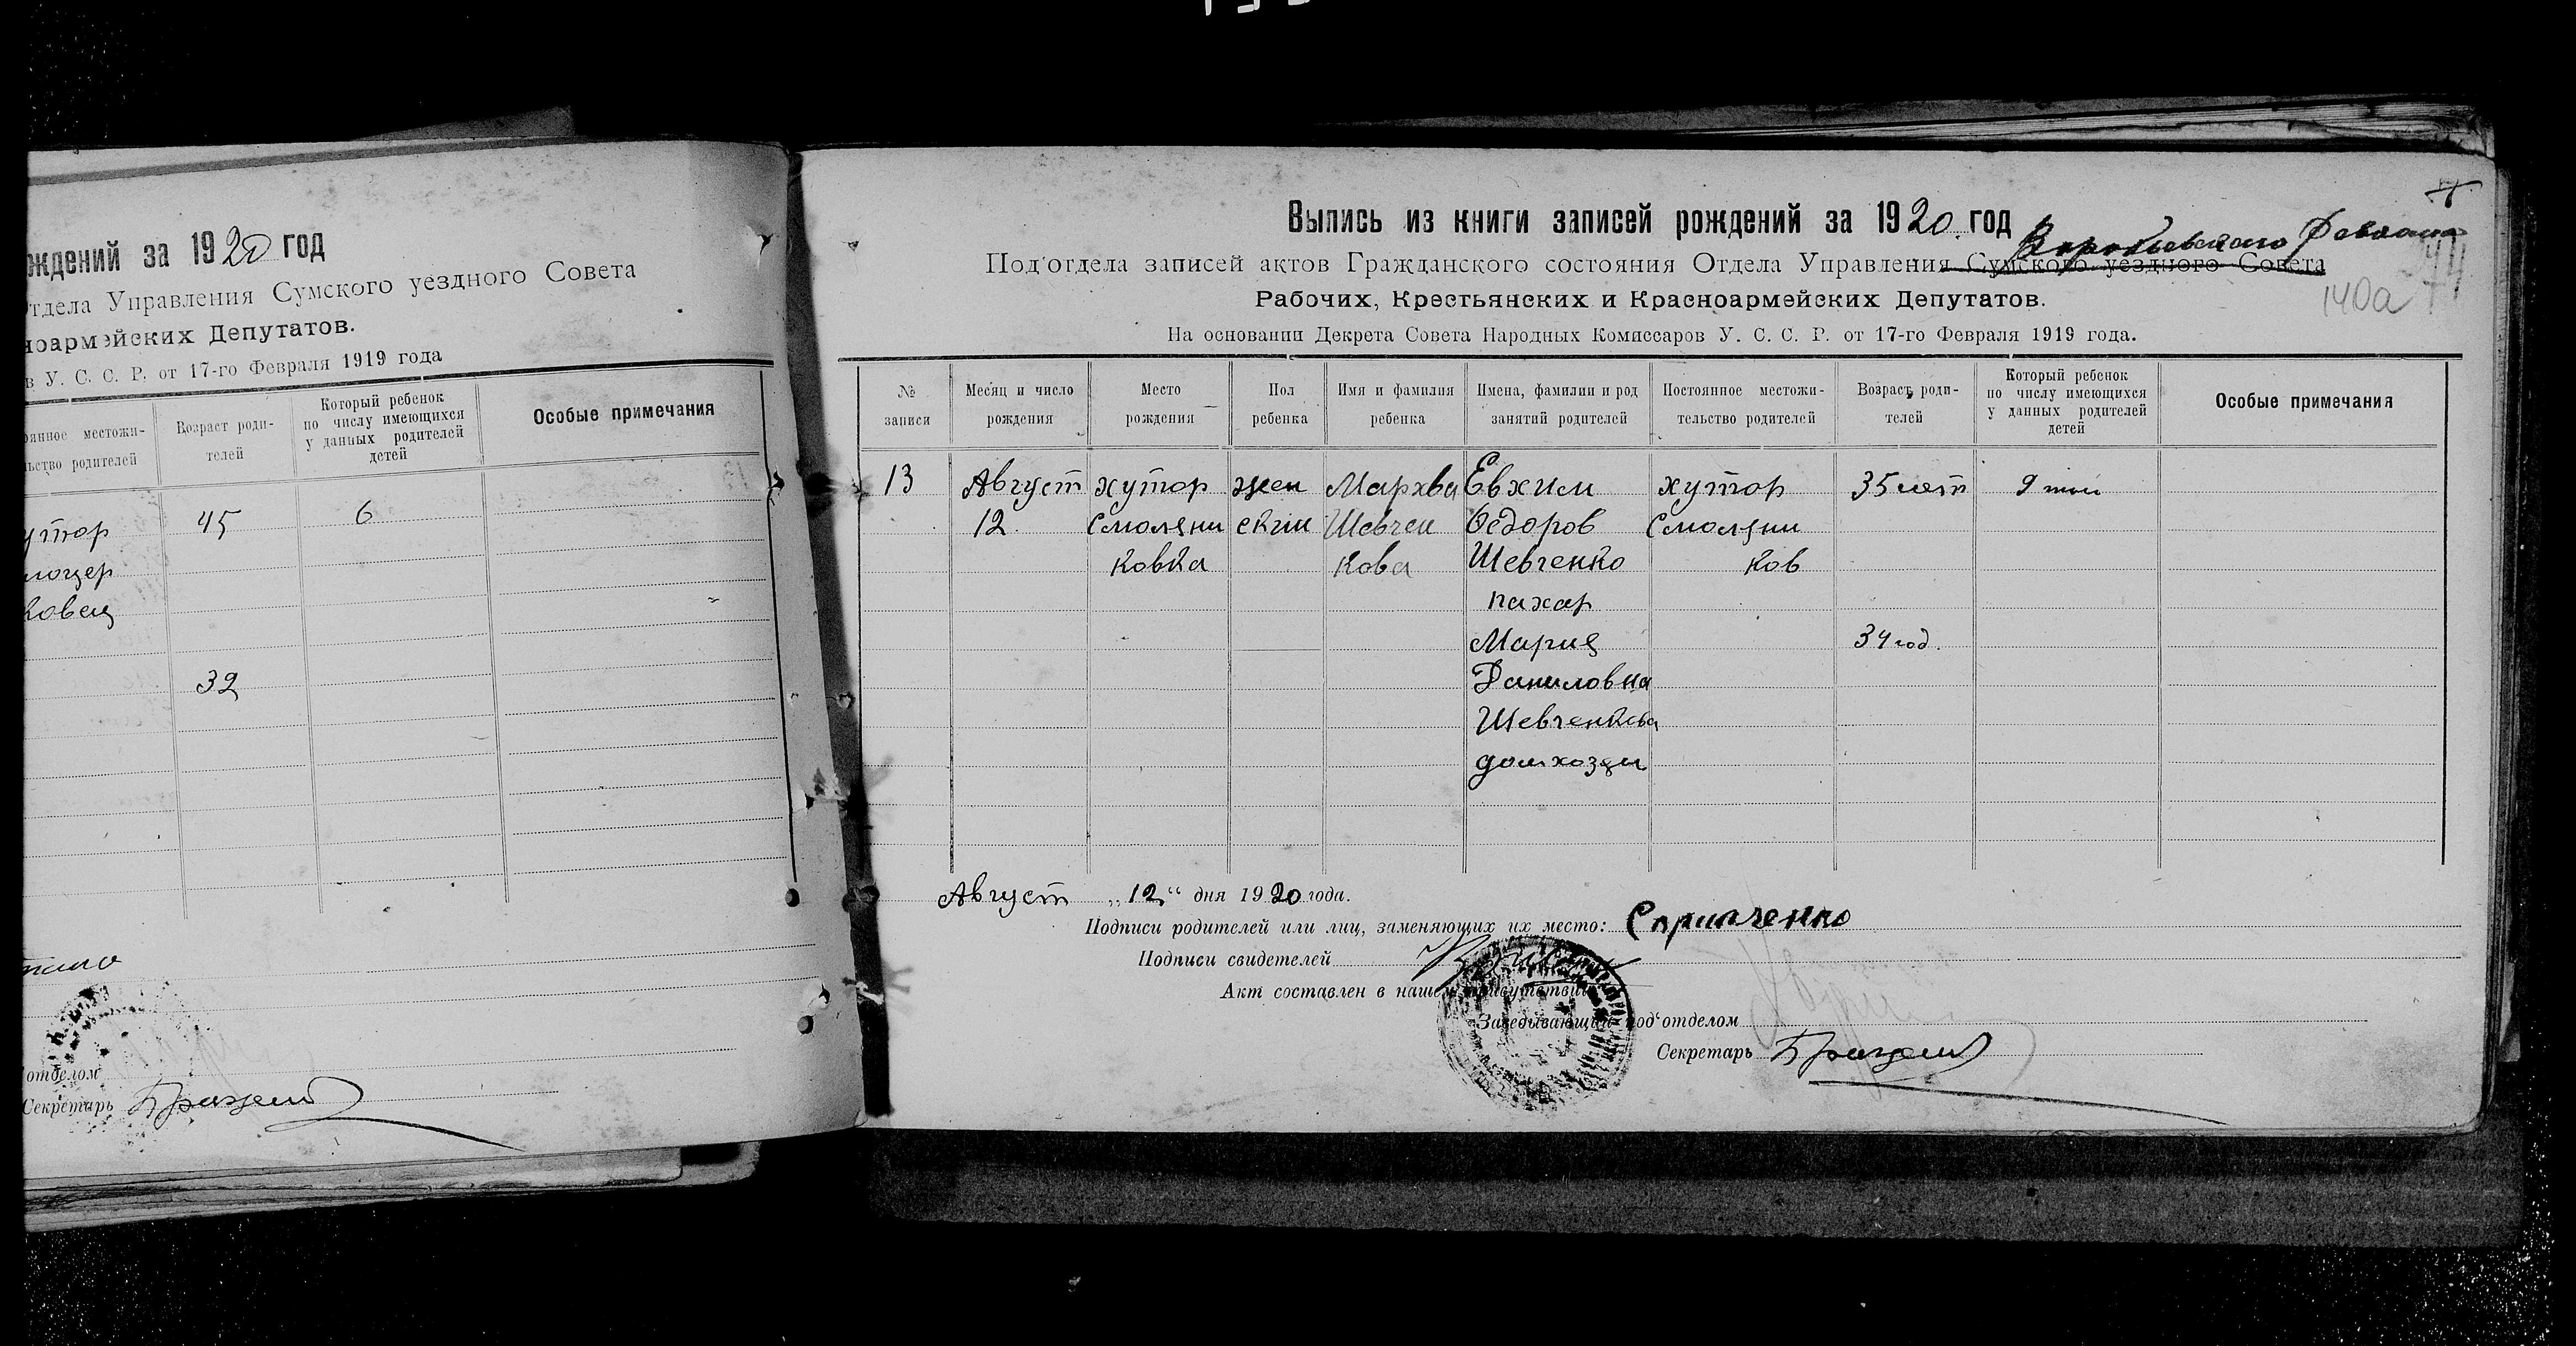 ждений за 1920 год
Отдела Управления Сумского уездного Совета
ноармейских Депутатов.
в У. С. С. Р. от 17-го Февраля 1919 года
янное местожи-
льство родителей
Возраст роди-
телей
Который ребенок
по числу имеющихся
у данных родителей
детей
Особые примечания
утор 45 6
32
отделом
Секретарь
Выпись из книги записей рождений за 1920 год
Под'отдела записей актов Гражданского состояния Отдела Управления Сумского уездного Совета
140а
Рабочих, Крестьянских и Красноармейских Депутатов.
На основании Декрета Совета Народных Комиссаров У. С. С. Р. от 17-го Февраля 1919 года.
№
записи
Месяц и число
рождения
Место
рождения
Пол
ребенка
Имя и фамилия
ребенка
Имена, фамилии и род
занятий родителей
Постоянное местожи-
тельство родителей
Возраст роди-
телей
Который ребенок
по числу имеющихся
у данных родителей
детей
Особые примечания
13 Август хутор жен Мархва Евхим хутор 35 лет 9
12 Смоляни ский Шевчен Федоров Смоляни
ковка кова Шевченко ков
пахар
Мария 34 год.
Даниловна
Шевченкова
домхозяи
Август „12“ дня 1920 года.
Подписи родителей или лиц, заменяющих их место:
Подписи свидетелей
Акт составлен в нашем присутствии
Заведывающий под'отделом
Секретарь